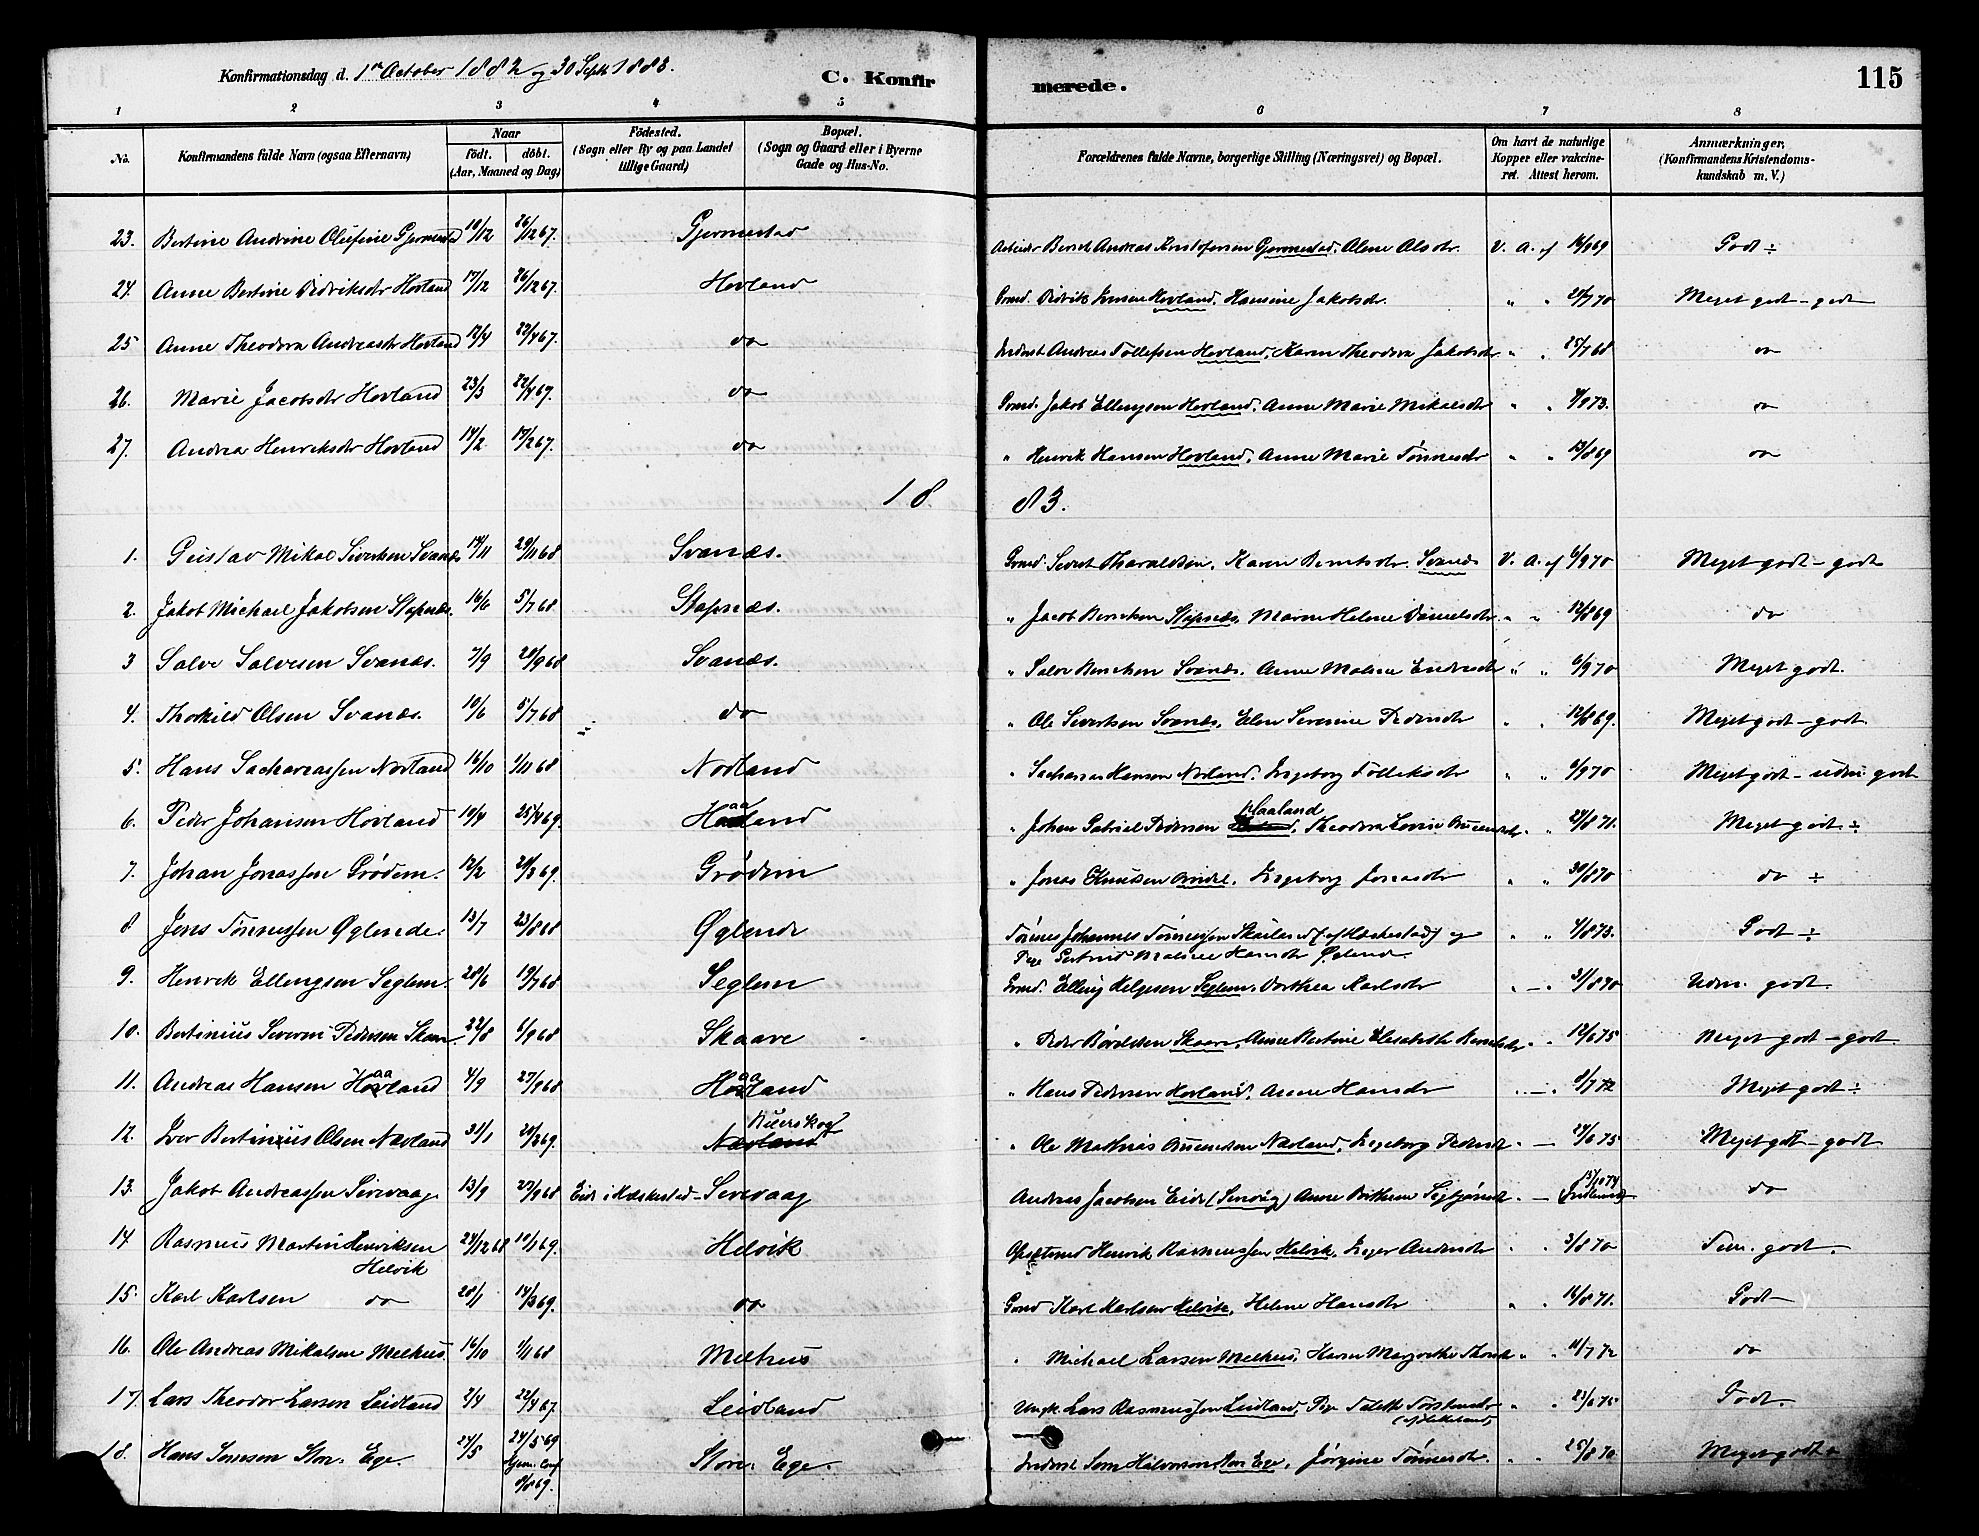 Konfirmationsdag d. 1ste October 1882 og 30 Septb 1883.
C. Konfirmerede.
115
1 2 3 4 5 6 7 8
No.
Konfirmandens fulde Navn (ogsaa Efternavn)
Naar
födt. döbt.
(Aar, Maaned og Dag)
Födested.
(Sogn eller By og paa Landet
tillige Gaard)
Bopæl.
(Sogn og Gaard eller i Byerne
Gade og Hus-No.
Forældrenes fulde Navne, borgerlige Stilling (Næringsvei) og Bopæl.
Om havt de naturlige
Kopper eller vakcine-
ret. Attest herom.
Anmærkninger,
(Konfirmandens Kristendoms-
kundskab m. V.)
23. Bertine Andrine Olufine Gjermestad 10/12 26/12 67. Gjermestad Arbeider Berent Andreas Kristofersen Gjermestad, Alene Olsdtr. V. A. af 16/9 69 Godt ÷
24. Anne Bertine Didriksdtr Hovland 17/12 26/12 67. Hovland Grmd. Didrik Hovland, Hansine Jakobsdr. " " 29/7 70 Meget godt - godt
25 Anne Theodora Andreasdr Hovland 12/4 22/4 67. do Inderst Andreas Tollefsen Hovland, Karen Theodora Jakobsdr " " 25/7 68 do
26. Marie Jacobsdr Hovland 23/3 22/4 67. do Grmd. Jakob Ellingsen Hovland, Anne Marie Mikalsdr " " 4/8 73. do
27. Andrea Henriksdr Hovland 14/2 17/2 67. do " Henrik Hansen Hovland, Anne Marie Tønnesdr " " 13/8 69 do
18 83.
1. Gustav Mikal Sivertsen Svanæs 14/11 29/11 68 Svanæs. Grmd. Sivert Tharaldsen, Karen Berntsdr. Svanæs V. A. af 6/9 70 Meget godt - godt
2. Jakob Michael Jakobsen Stapnæs. 16/6 5/7 68 Stapnæs. " Jacob Berntsen Stapnæs, Maren Helene Danielsdr. " " 12/8 69 do
3 Salve Salvesen Svanæs. 7/9 20/9 68 Svanæs. " Salve Berntsen Svanæs. Anne Malene Endresdr " " 6/9 70 Meget godt.
4. Thorkild Olsen Svanæs. 10/6 5/7 68 do " Ole Sivertsen Svanæs, Elen Severine Pedersdr " " 12/8 69. Meget godt - godt
5. Hans Sachariassen Nodland 16/10 1/11 68 Nodland " Sacharias Hansen Nodland, Ingeborg Tollefsdr " " 6/9 70 Meget godt - udm. godt
6. Peder Johansen Hovland 10/4 25/4 69. Haaland " Johan Gabriel Pedersen Haaland, Theodora Lovise " " 24/8 71. Meget godt ÷
7. Johan Jonassen Grødem. 12/2 28/3 69. Grødem " Jonas Knudsen, Ingeborg Jonasdr " " 30/8 70 do ÷
8 Jens Tønnessen Øglende. 13/7 23/8 68 Øglende Tønnes Johannes Tønnessen Skailand (af Heskestad) og " " 4/8 73. Godt ÷
Pige Gertrud Malene Hansdr Øglend
9. Henrik Ellingsen Seglem. 28/6 19/7 68 Seglem Grmd. Elling Helgesen Seglem, Dorthea Karlsdr " - " 31/8 70 Udm. godt.
10. Bertinius Severin Pedersen Skaar 22/8 6/9 68 Skaare " Peder Skaare, Anne Bertine Elisabeth Berntsdr " " 12/6 75 Meget godt - godt.
11. Andreas Hansen Haaland 4/9 27/9 68 Haaland " Hans Pedersen Hovland, Anne Hansdr " - " 8/7 72 Meget godt ÷
12. Iver Bertinius Olsen Nævland 31/1 28/3 69. Nævland " Ole Mathias Nævland, Ingeborg Pedersdr " - " 24/6 75 Meget godt - godt
13. Jakob Andreassen Sirevaag 13/9 27/9 68 Eide i Heskestad - Sirevaag Andreas Jacobsen Eide (Sirevåg) Anne " - 15/10 74 do
14 Rasmus Martin Henriksen 24/12 68 10/1 69. Helvik Henrik Rasmussen Helvik, Inger Andersdr " " 3/8 70 Tem. godt.
Helvik
15. Karl Karlsen do 20/1 14/3 69. do Grmd Karl Karlsen Helvik, Helene Hansdr " " 14/8 71. Godt
16. Ole Andreas Mikalsen Melhus 14/10 1/11 68 Melhus " Michael Larsen Melhus, Karen Margrethe " " 11/7 72 do
17. Lars Theodor Larsen Leidland 2/4 22/4 67. Leidland Ungk. Lars Rasmussen Leidland, Pige Talette Torstensdr " " 23/6 75 Godt.
18. Hans Sørensen Store Ege. 24/5 24/5 69 Store Ege. Inderst Søren Halvorsen Store Ege, Jørgine Tønnesdr. " " 25/8 70 Meget godt
Hjem. Conf
8/8 69.